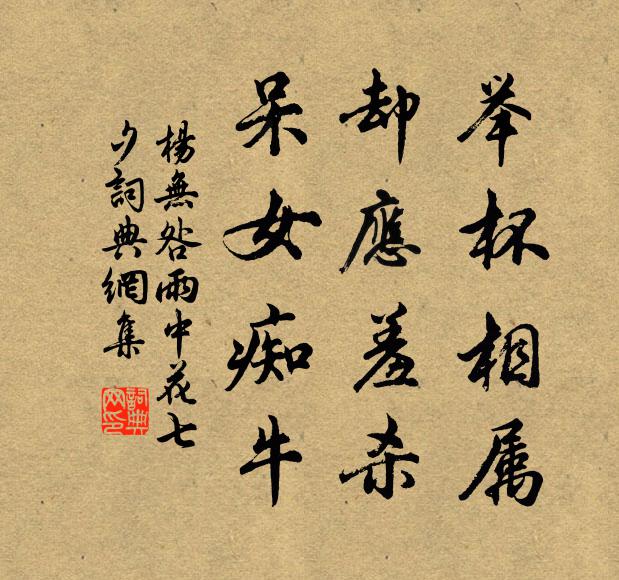 举杯相属
却應羞杀
呆女痴牛
楊無咎雨中花七
夕詞典網集
詞典
网印